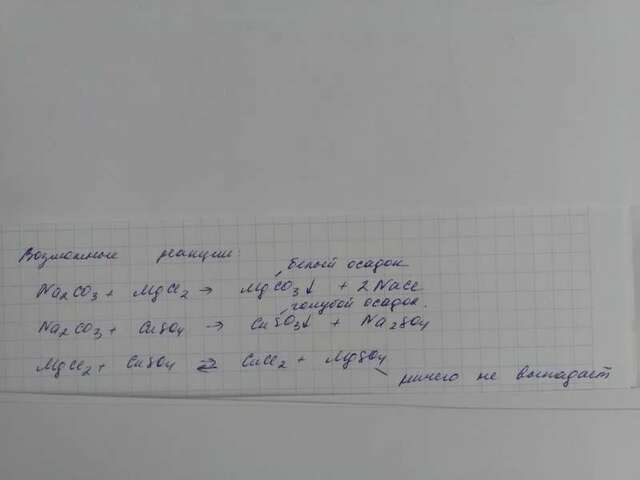 Возможные реакции:
белый осадок
Na2CO3 + MgCl2 → MgCO3↓ + 2NaCl
голубой осадок.
Na2CO3 + CuSO4 → CuCO3↓ + Na2SO4
MgCl2 + CuSO4 ⇄ CuCl2 + MgSO4
ничего не выпадает